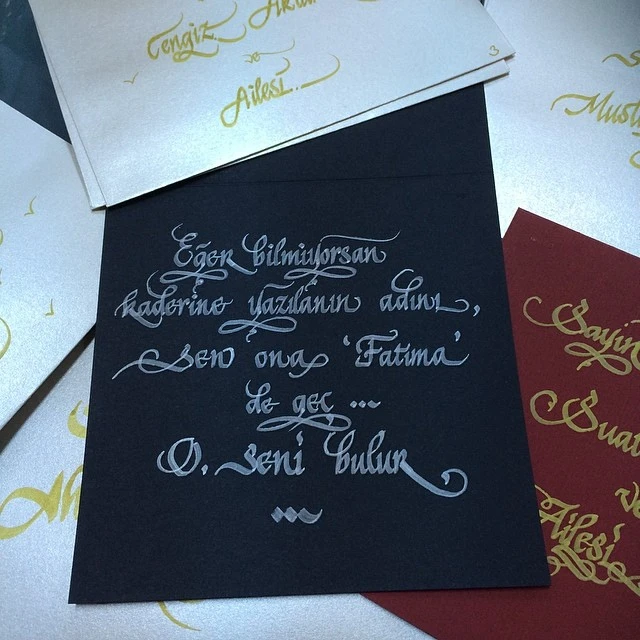 Cengiz
ve
Ailesi..
3
Eğer bilmiyorsan
kaderine yazılanın adını,
sen ona 'Fatıma'
de geç ...
O, seni bulur
...
Sayın
ve
Ailesi